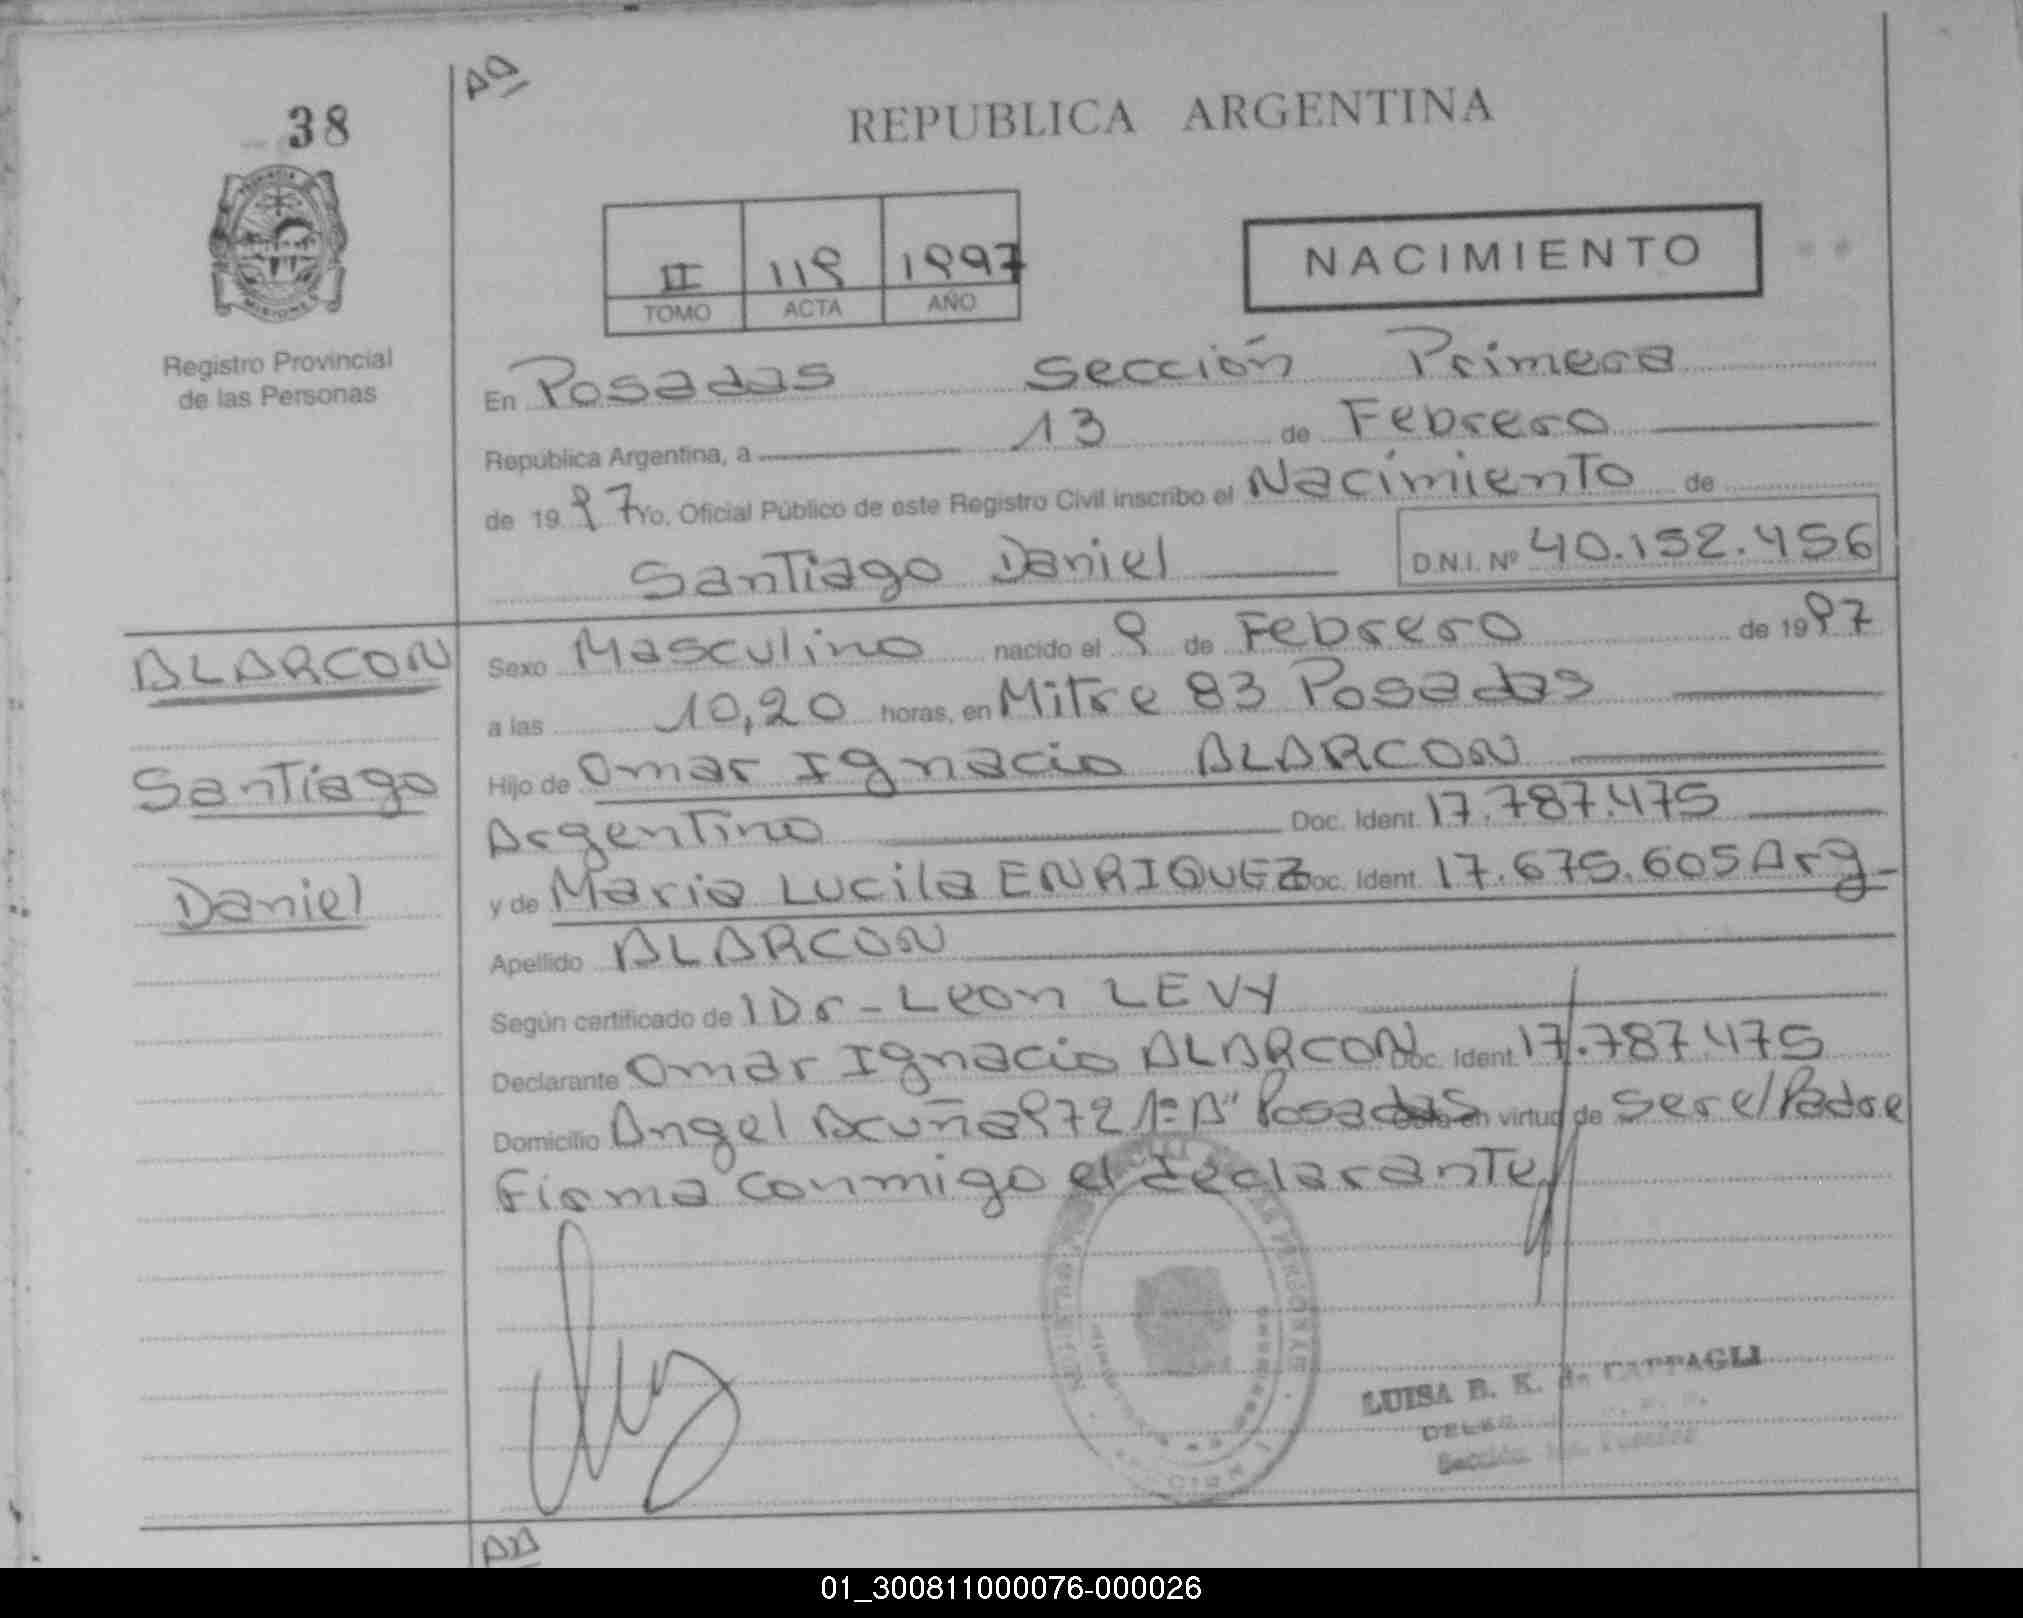 38
REPUBLICA ARGENTINA
II 119 1997
TOMO ACTA AÑO
NACIMIENTO
Registro Provincial
de las Personas
En Posadas Sección Primera
República Argentina, a 13 de Febrero
de 1997 Yo, Oficial Público de este Registro Civil inscribo el Nacimiento de
Santiago Daniel D.N.I. Nº 40.152.456
ALARCON
Santiago
Daniel
Sexo Masculino nacido el 9 de Febrero de 1997
a las 10,20 horas, en Mitre 83 Posadas
Hijo de Omar Ignacio ALARCON
Argentino Doc. Ident. 17.787.475
y de Maria Lucila ENRIQUEZ Doc. Ident. 17.675.605 Arg.
Apellido ALARCON
Según certificado de l Dr - Leon LEVY
Declarante Omar Ignacio ALARCON Doc. Ident. 17.787.475
Domicilio Angel Acuña 972 1º A" Posadas en virtud de ser el Padre
Firma conmigo el declarante
LUISA B. K. de CAPPAGLI
01_300811000076-000026